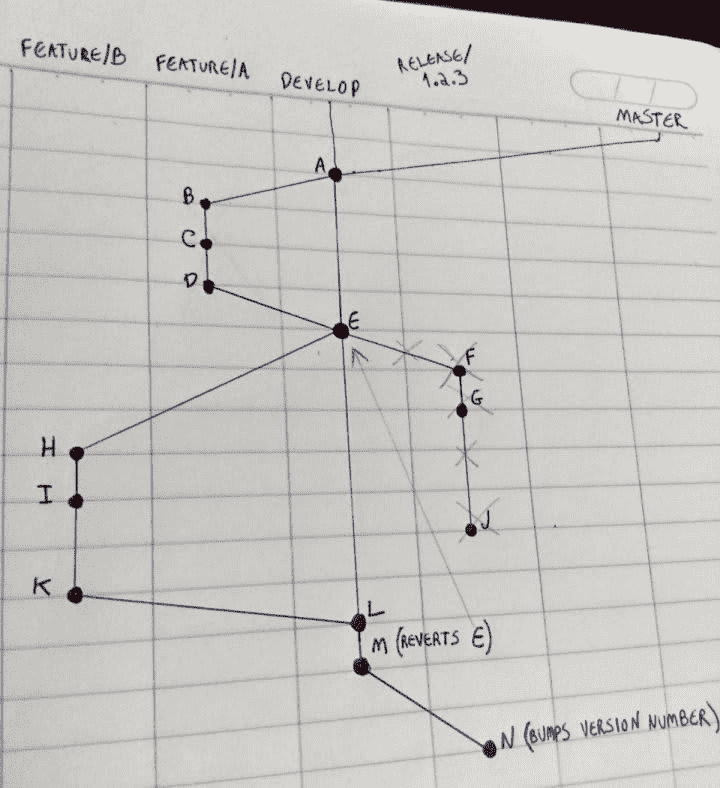 FEATURE/B
FEATURE/A
DEVELOP
RELEASE/
1.2.3
MASTER
A
B
C
D
E
F
G
H
I
J
K
L
M (REVERTS E)
N (BUMPS VERSION NUMBER)